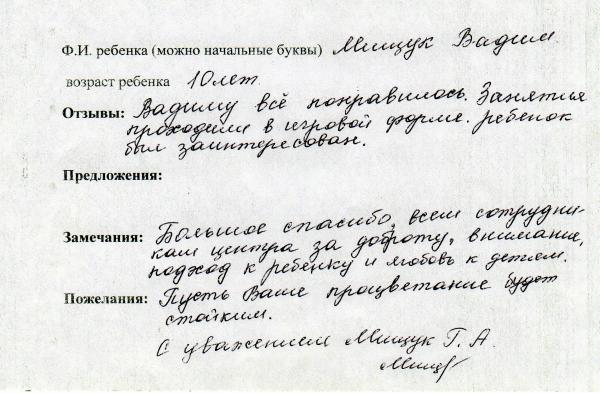 Ф.И. ребенка (можно начальные буквы) Мищук Вадим
возраст ребенка 10 лет.
Отзывы: Вадиму всё понравилось. Занятия
проходили в игровой форме. ребенок
был заинтересован.
Предложения:
Замечания: Большое спасибо, всем сотрудни-
кам центра за доброту, внимание,
подход к ребенку и любовь к детям.
Пожелания: Пусть Ваше процветание будет
стойким.
С уважением Мищук Г. А.
Мищ